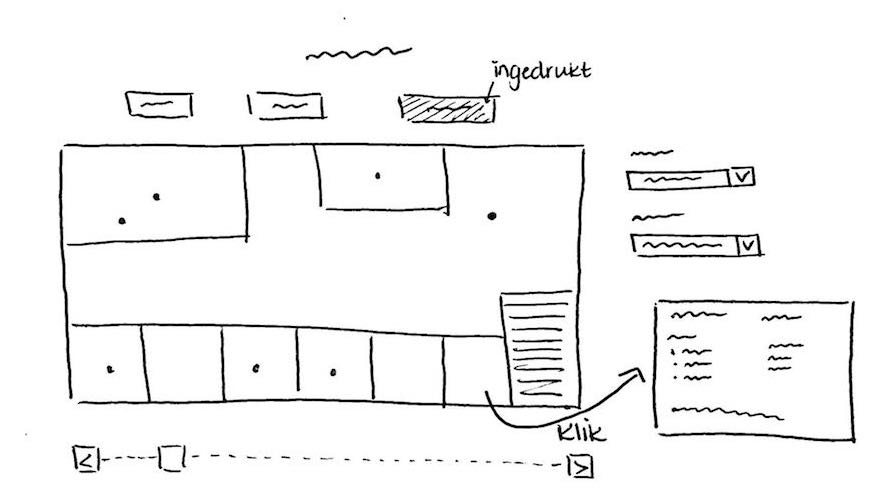 ingedrukt
<
>
Klik